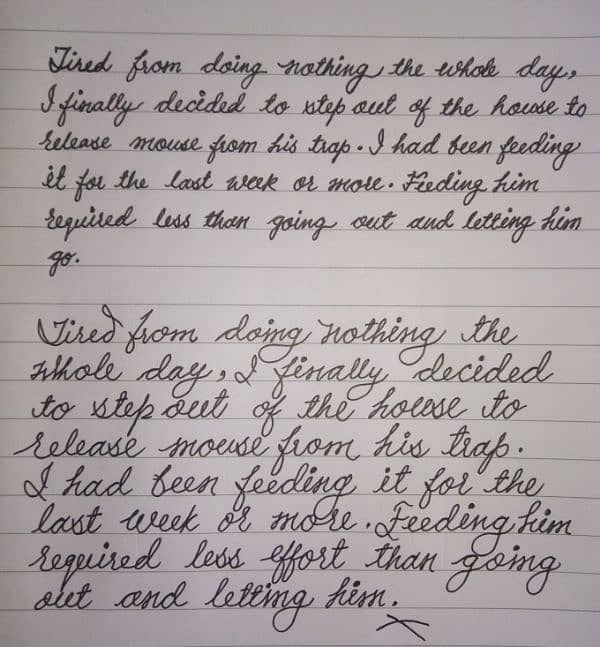 Tired from doing nothing the whole day,
I finally decided to step out of the house to
release mouse from his trap. I had been feeding
it for the last week or more. Feeding him
required less than going out and letting him
go.
Tired from doing nothing the
whole day, I finally decided
to step out of the house to
release mouse from his trap.
I had been feeding it for the
last week or more. Feeding him
required less effort than going
out and letting him.